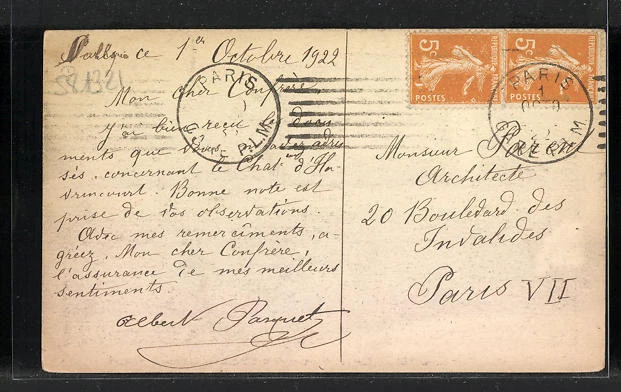 ce 1er Octobre 1922
58.1321
Mon cher Confrère,
J'ai bien reçu
ments que vous m'avez adres
sés, concernant le Chat. d'He
vrincourt. Bonne note est
prise de vos observations.
Avec mes remerciments, a-
gréez, Mon cher Confrère,
l'assurance de mes meilleurs
sentiments
Albert Pasquet
5c
POSTES
5c
POSTES
PARIS
P.L.M.
PARIS
GARE P.L.M
Monsieur
Architecte
20 Boulevard des
Invalides
Paris VII